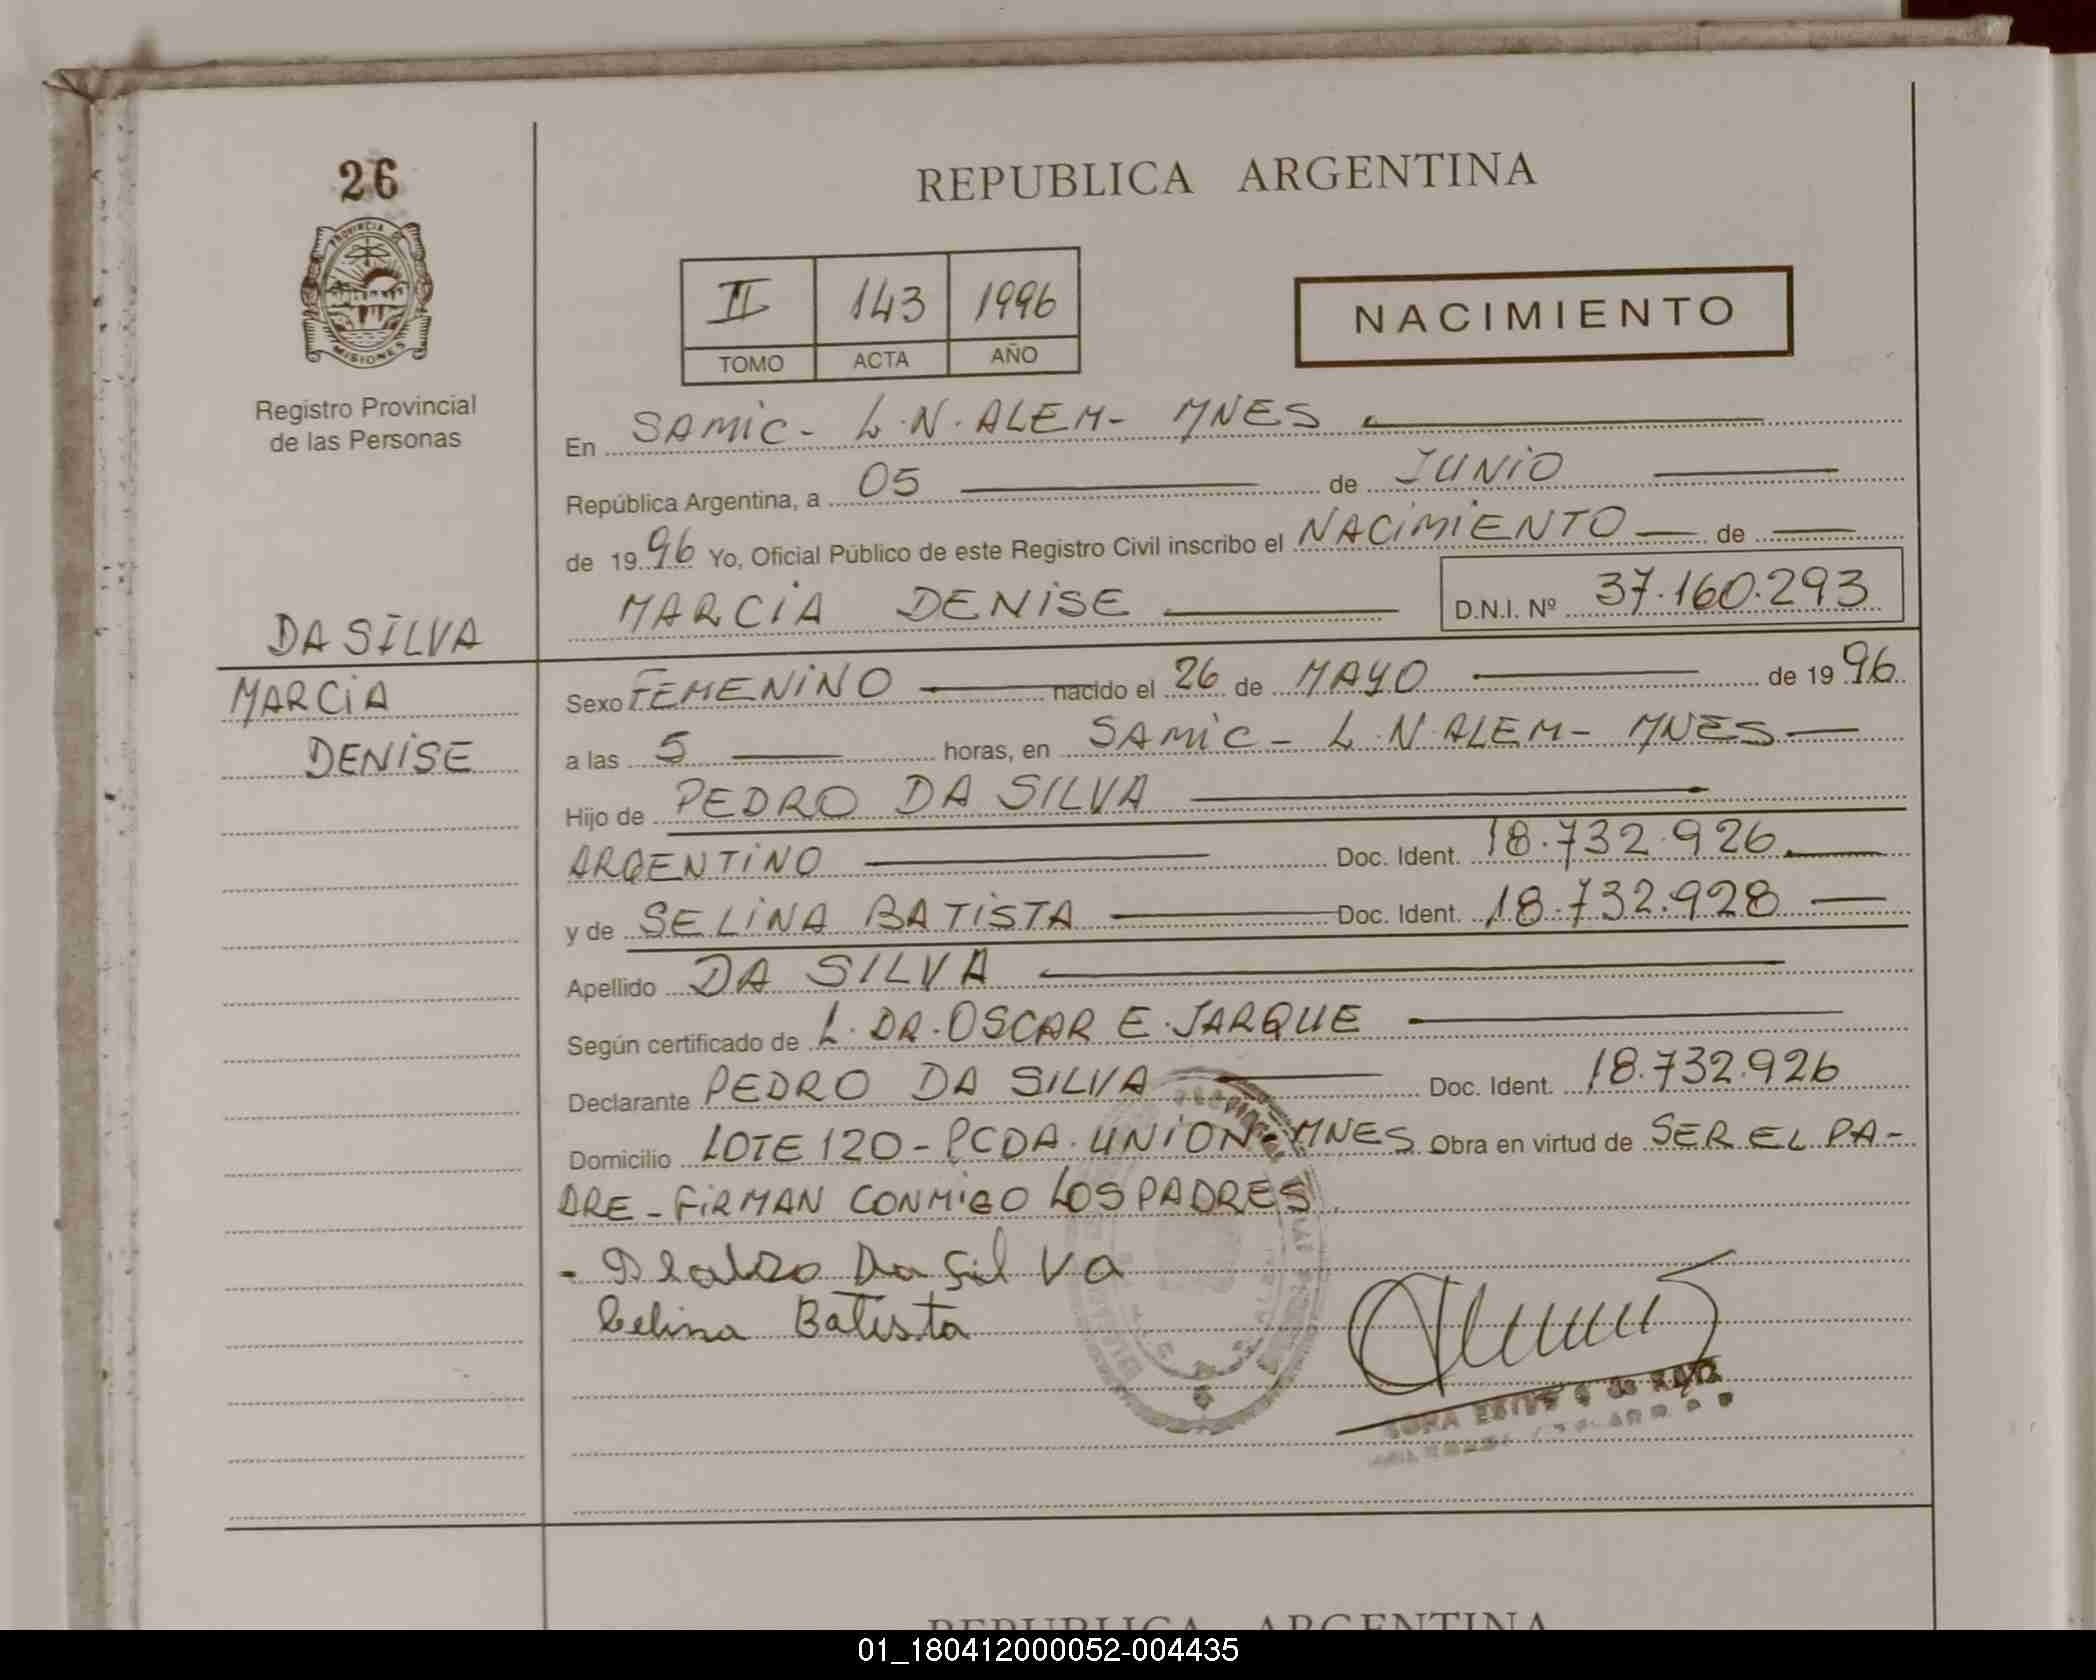 26
PROVINCIA DE
MISIONES
Registro Provincial
de las Personas
DA SILVA
MARCIA
DENISE
REPUBLICA ARGENTINA
II 143 1996
TOMO ACTA AÑO
NACIMIENTO
En SAMIC - L.N. ALEM - MNES
República Argentina, a 05 de JUNIO
de 1996 Yo, Oficial Público de este Registro Civil inscribo el NACIMIENTO de
MARCIA DENISE D.N.I. Nº 37.160.293
Sexo FEMENINO nacido el 26 de MAYO de 1996
a las 5 horas, en SAMIC - L.N. ALEM - MNES
Hijo de PEDRO DA SILVA
ARGENTINO Doc. Ident. 18.732.926
y de SELINA BATISTA Doc. Ident. 18.732.928
Apellido DA SILVA
Según certificado de L. DR. OSCAR E. JARQUE
Declarante PEDRO DA SILVA Doc. Ident. 18.732.926
Domicilio LOTE 120 - PCDA. UNION - MNES Obra en virtud de SER EL PA-
DRE - FIRMAN CONMIGO LOS PADRES
Da Sil va
Celina Batista
REPUBLICA ARGENTINA
01_180412000052-004435